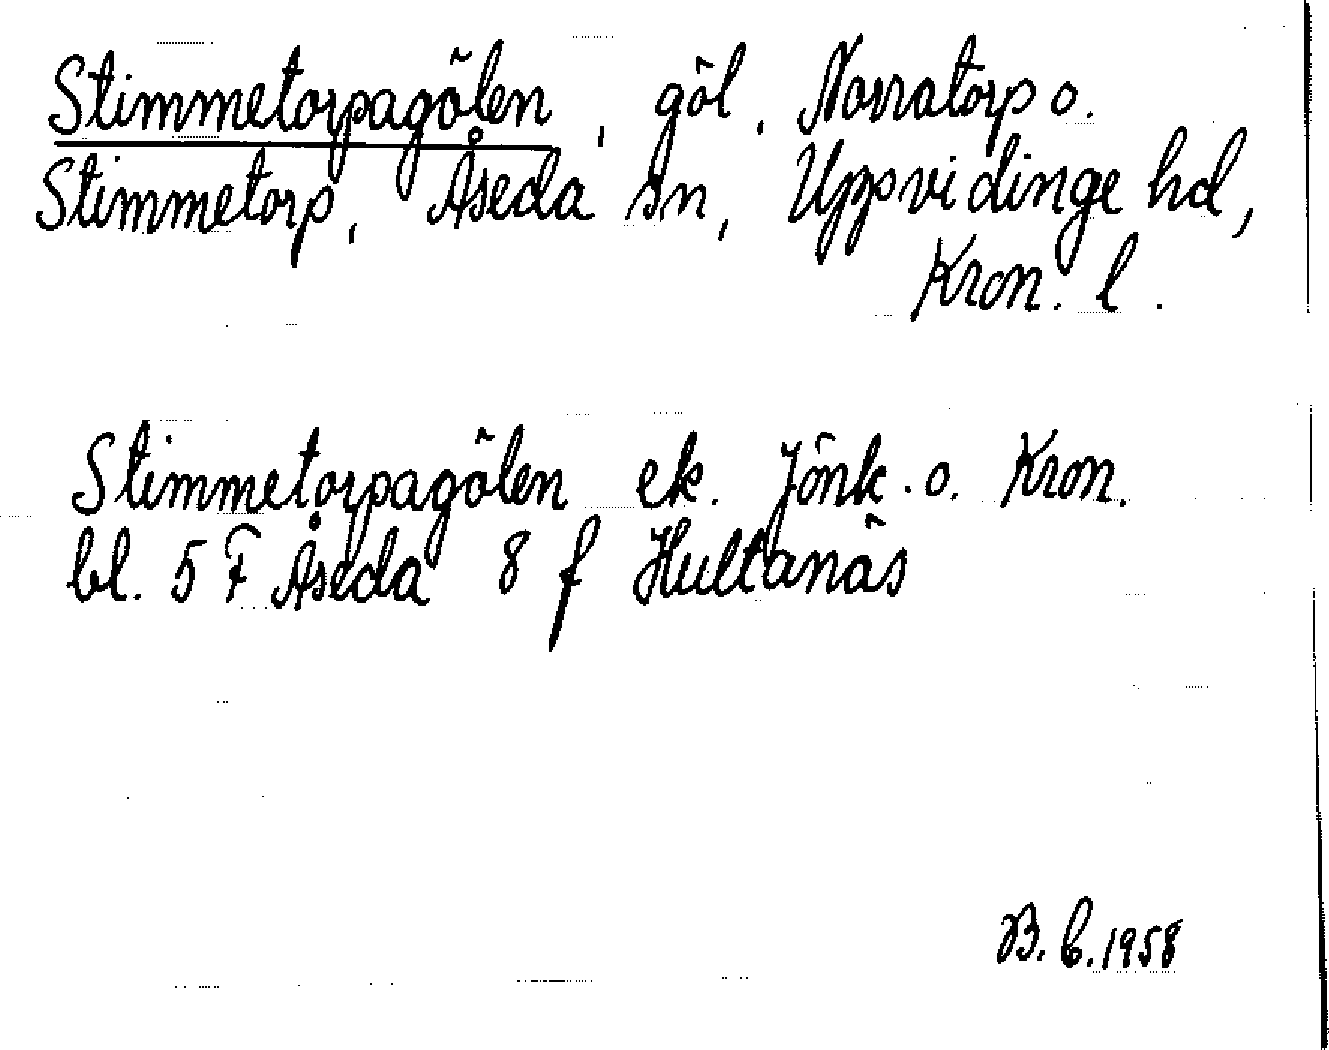 Stimmetorpagölen, göl, Norratorp o.
Stimmetorp, Åseda sn, Uppvidinge hd,
Kron. l.
Stimmetorpagölen ek. Jönk. o. Kron.
bl. 5 F Åseda 8 f Hultanäs
B. C. 1958